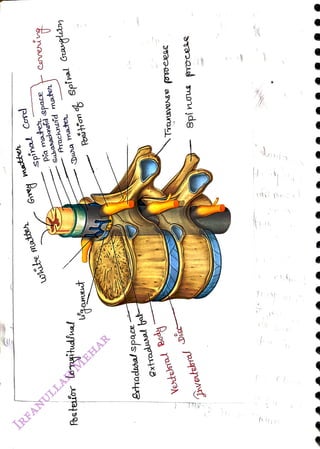 White matter
Grey matter
Spinal Cord
Pia mater
Subarachnoid space
Arachnoid mater
Dura mater
covering
Position of Spinal Ganglion
Transverse process
Spinous process
Posterior longitudinal
ligament
Extradural space
Extradural fat
Vertebral Body
Invertebral Disc
IRFANULLAH MEHAR